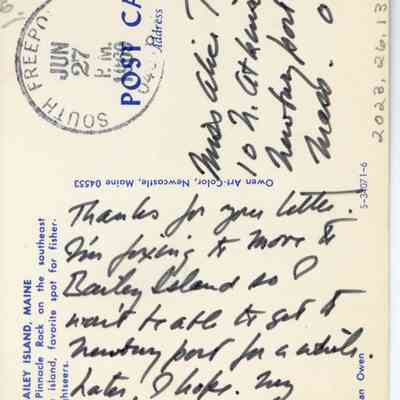 SOUTH FREEPO
JUN
27
P.M.
POST CA
Address
Miss Alice T
10 N. Atkins
Newburyport
Mass. 0
2023.26.13
Owen Art-Color, Newcastle, Maine 04553
5-34071-6
AILEY ISLAND, MAINE
Pinnacle Rock on the southeast
island, favorite spot for fisher-
ghtseers.
Thanks for your letter.
I'm fixing to move to
Bailey Island so I
won't be able to get to
Newburyport for a while.
Later, I hope. My
an Owen